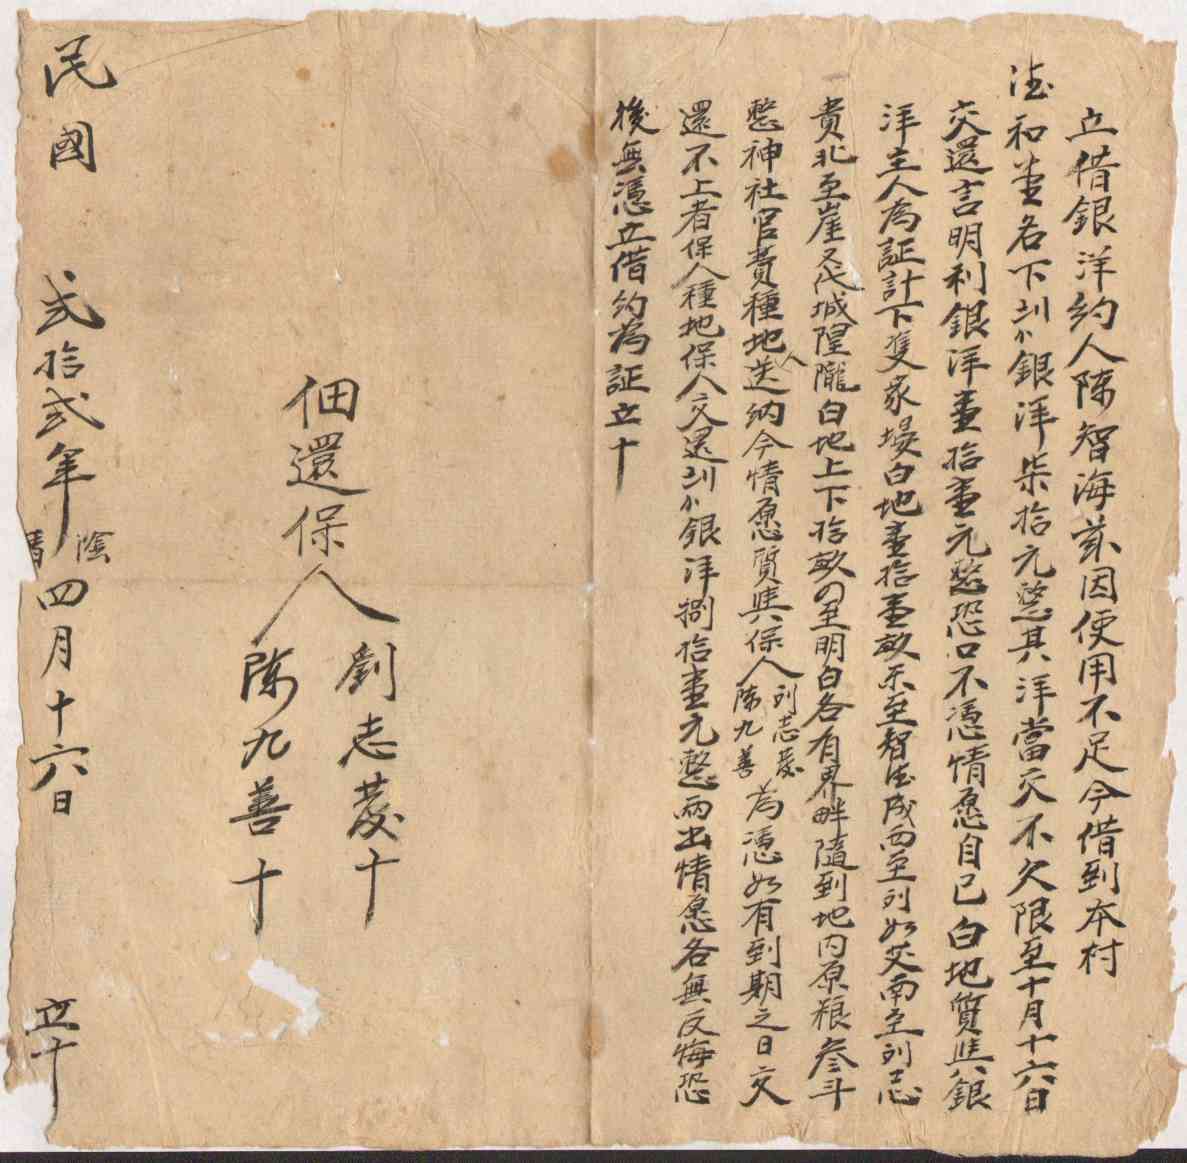 立借銀洋約人陈智海兹因使用不足今借到本村
德和堂名下刘尒銀洋柒拾元整其洋當交不欠限至十月十六日
交還言明利銀洋壹拾壹元整恐口不憑情愿自己白地質與銀
洋主人為証計下雙家塲白地壹拾壹畝东至智德成西至刘如芝南至刘志
貴北至崖又代城隍隴白地上下拾畝四至明白各有界畔隨到地内原粮叁斗
整神社官費種地人送納今情愿質與保人刘志彦陈九善為憑如有到期之日交
還不上者保人種地保人交還刘尒銀洋捌拾壹元整两出情愿各無反悔恐
後無憑立借約為証立十
佃還保人
劉志彦十
陈九善十
民國 弍拾弍年陰曆四月十六日 立十